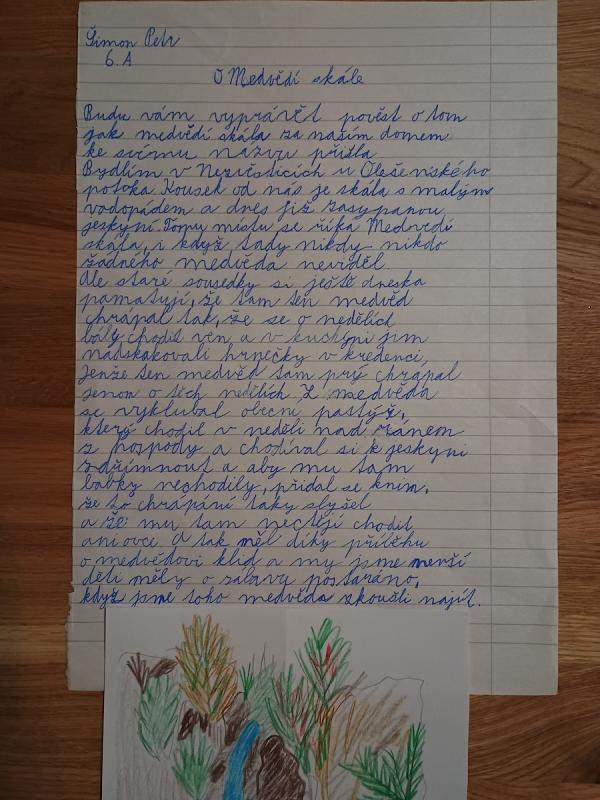 Šimon Petr
6. A
O Medvědí skále
Budu vám vyprávět pověst o tom
jak medvědí skála za naším domem
ke svému názvu přišla
Bydlím v Nezvěsticích u Olešenského
potoka Kousek od nás je skála s malým
vodopádem a dnes již zasypanou
jeskyní. Tomu místu se říká Medvědí
skála, i když tady nikdy nikdo
žádného medvěda neviděl.
Ale staré sousedky si ještě dneska
pamatují, že tam ten medvěd
chrápal tak, že se o nedělích
bály chodit ven a v kuchyni jim
nadskakovali hrnečky v kredenci,
Jenže ten medvěd tam prý chrápal
jenom o těch nedělích. Z medvěda
se vyklubal obecní pastýř,
který chodil v neděli nad ránem
z hospody a chodíval si k jeskyni
zdřímnout a aby mu tam
babky nechodily, přidal se knim,
že to chrápání taky slyšel
a že mu tam nechtějí chodit
ani ovce. A tak měl díky příběhu
o medvědovi klid a my jsme menší
děti měly o zábavu postaráno,
když jsme toho medvěda zkoušli najít.